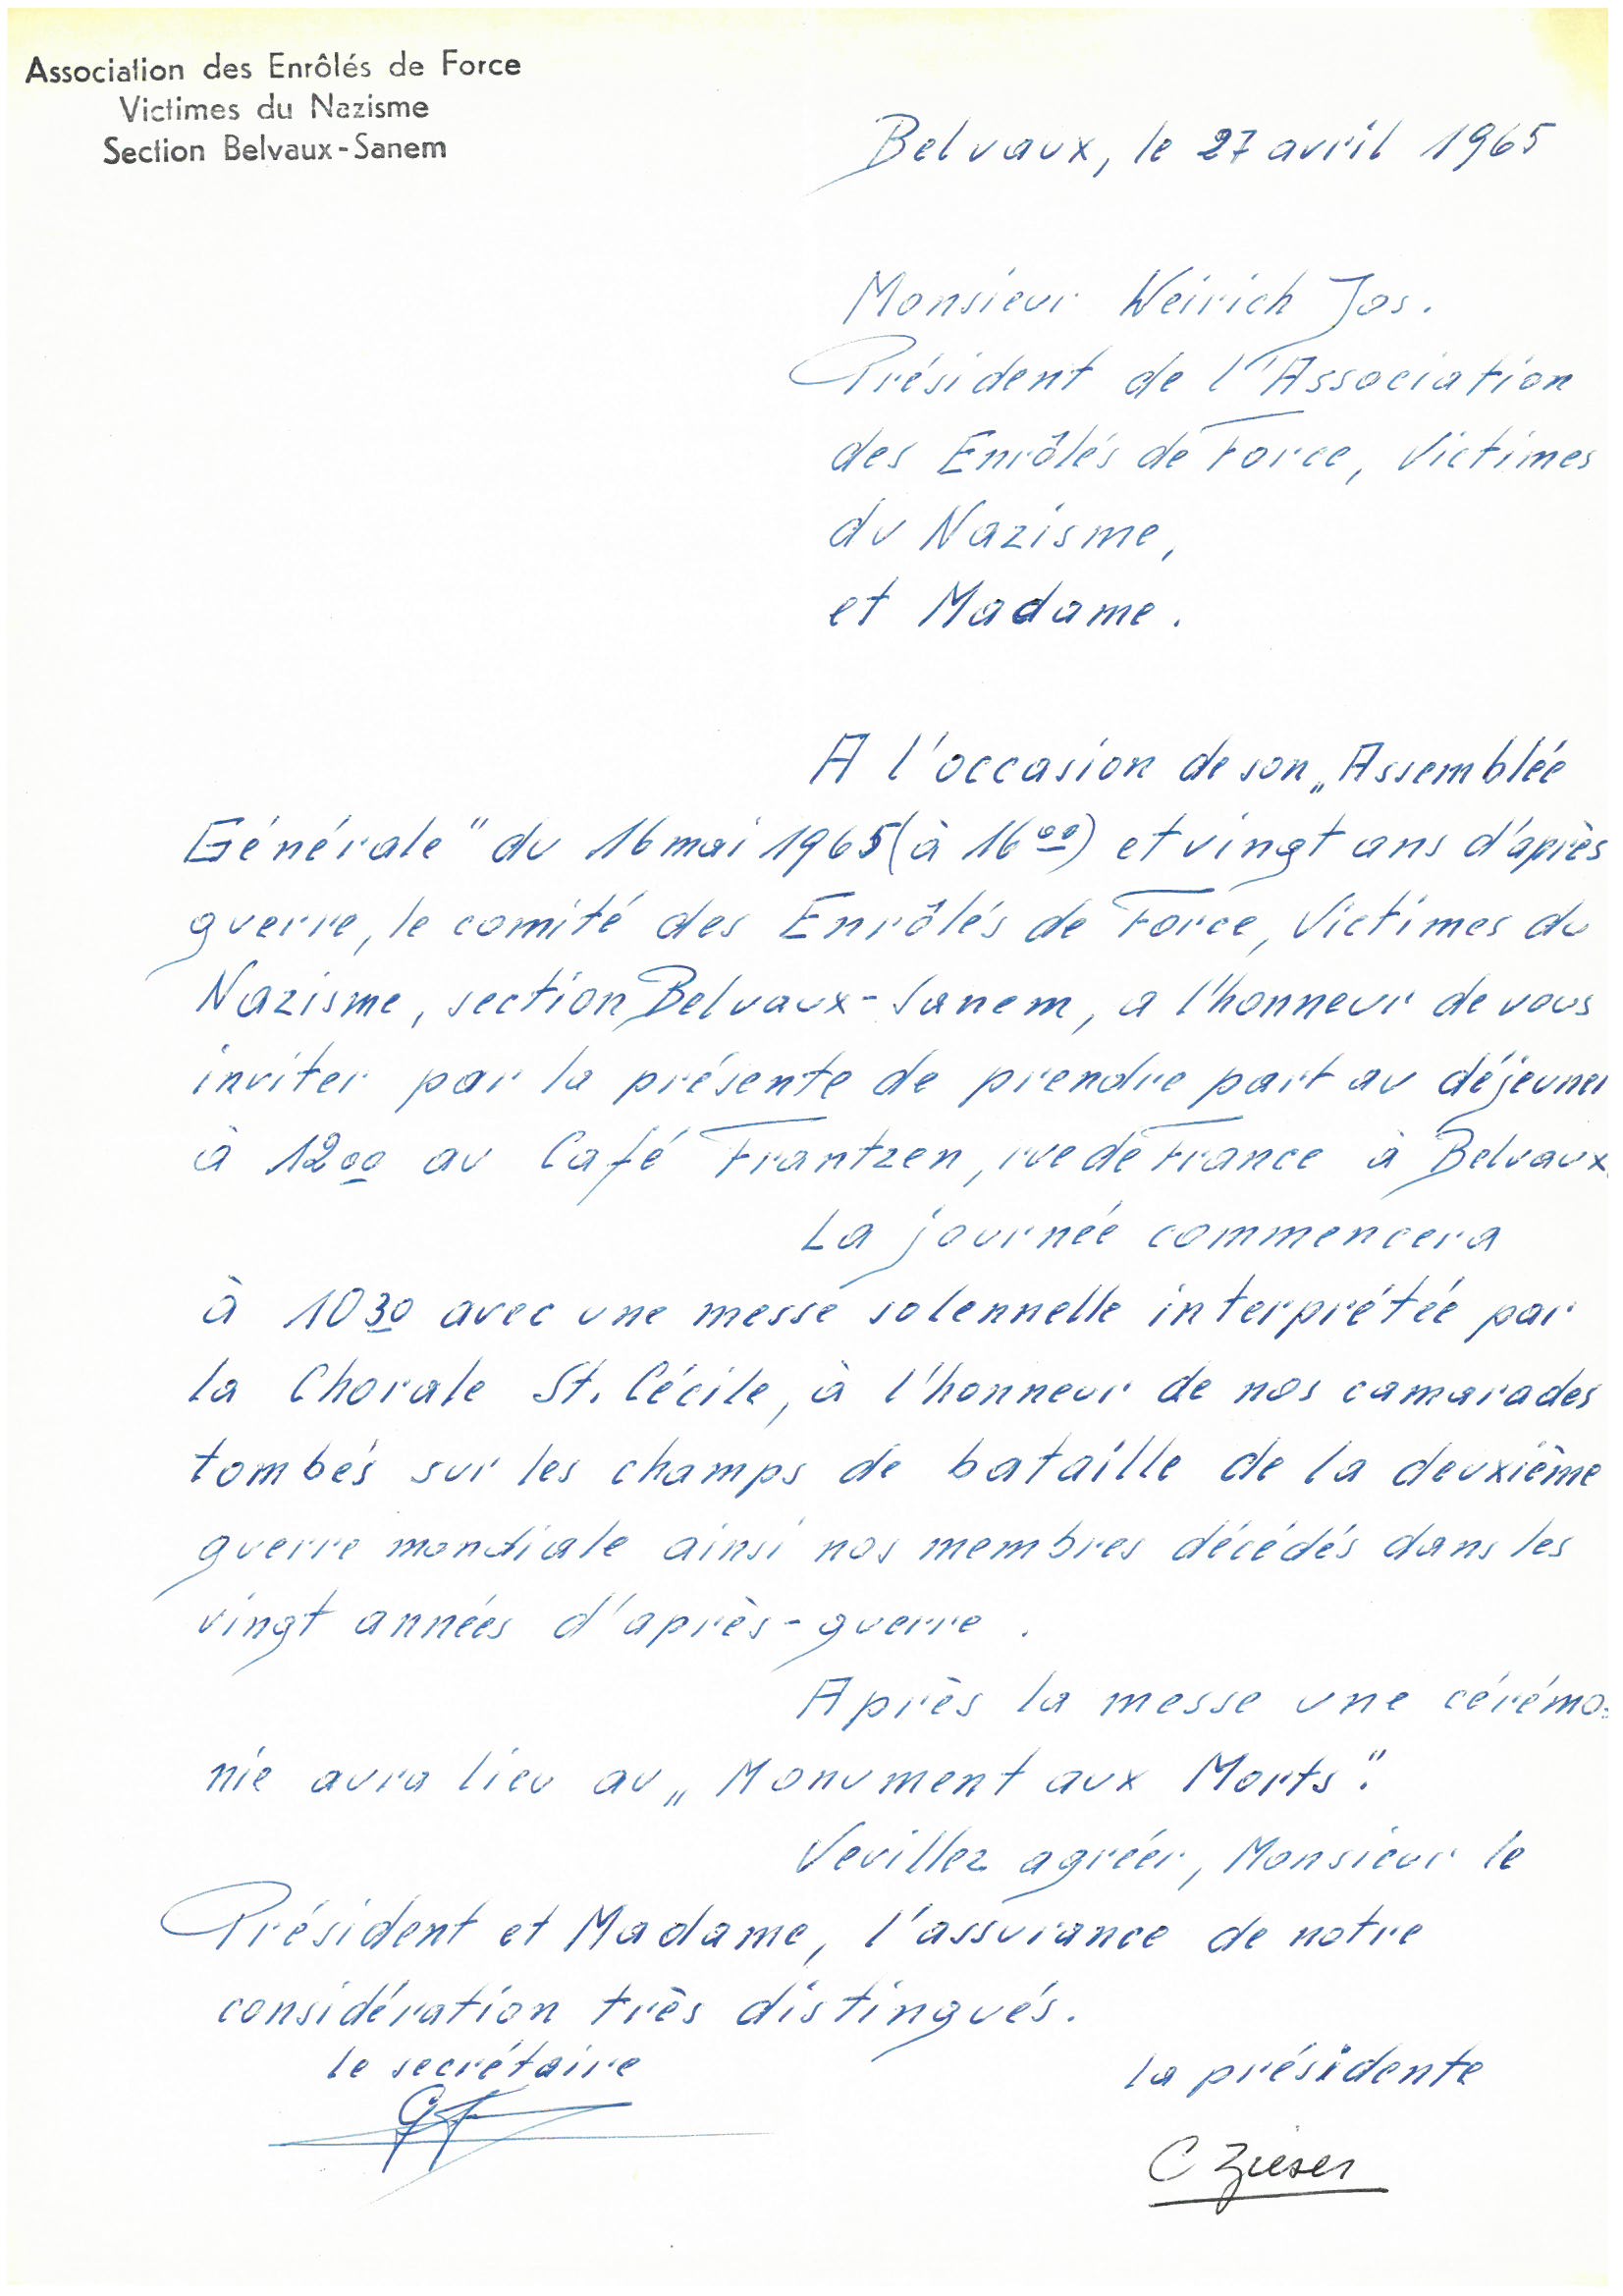 Association des Enrôlés de Force
Victimes du Nazisme
Section Belvaux-Sanem
Belvaux, le 27 avril 1965
Monsieur Weirich Jos.
Président de l'Association
des Enrôlés de Force, Victimes
du Nazisme,
et Madame.
A l'occasion de son „Assemblée
Générale" du 16 mai 1965 (à 16⁰⁰) et vingt ans d'après
guerre, le comité des Enrôlés de Force, Victimes du
Nazisme, section Belvaux-Sanem, a l'honneur de vous
inviter par la présente de prendre part au déjeuner
à 12⁰⁰ au Café Frantzen, rue de France à Belvaux.
La journée commencera
à 10³⁰ avec une messe solennelle interprétée par
la Chorale St. Cécile, à l'honneur de nos camarades
tombés sur les champs de bataille de la deuxième
guerre mondiale ainsi nos membres décédés dans les
vingt années d'après-guerre.
Après la messe une cérémo=
nie aura lieu au „Monument aux Morts".
Veuillez agréer, Monsieur le
Président et Madame, l'assurance de notre
considération très distingués.
le secrétaire
la présidente
C Zieser